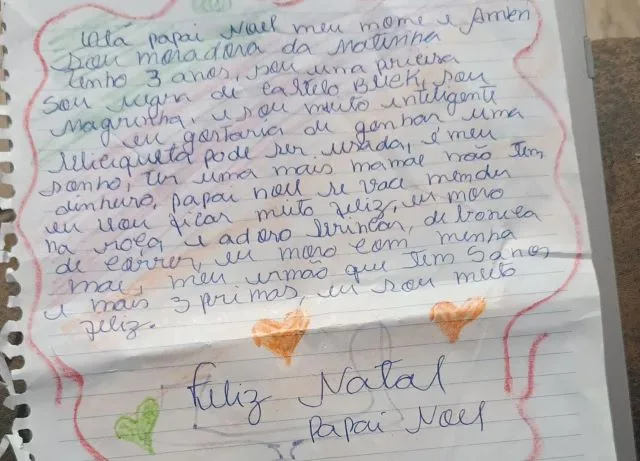 Olá papai Noel meu nome e Amben
Sou moradora da Matinha
tenho 3 anos, sou uma preciosa
sou negra de castelo Bleck, sou
magrinha, e sou muito inteligente
eu gostaria de ganhar uma
bicicqueta pode ser usada, é meu
sonho, ter uma mais mamãe não tem
dinhuro, papai noel se voce mender
eu vou ficar muito feliz, eu moro
na roça e adoro brincar, de boneca
de correr, eu moro com minha
mai, meu irmão que tem 5 anos
e mais 3 primas, eu sou muito
feliz.
Feliz Natal
Papai Noel